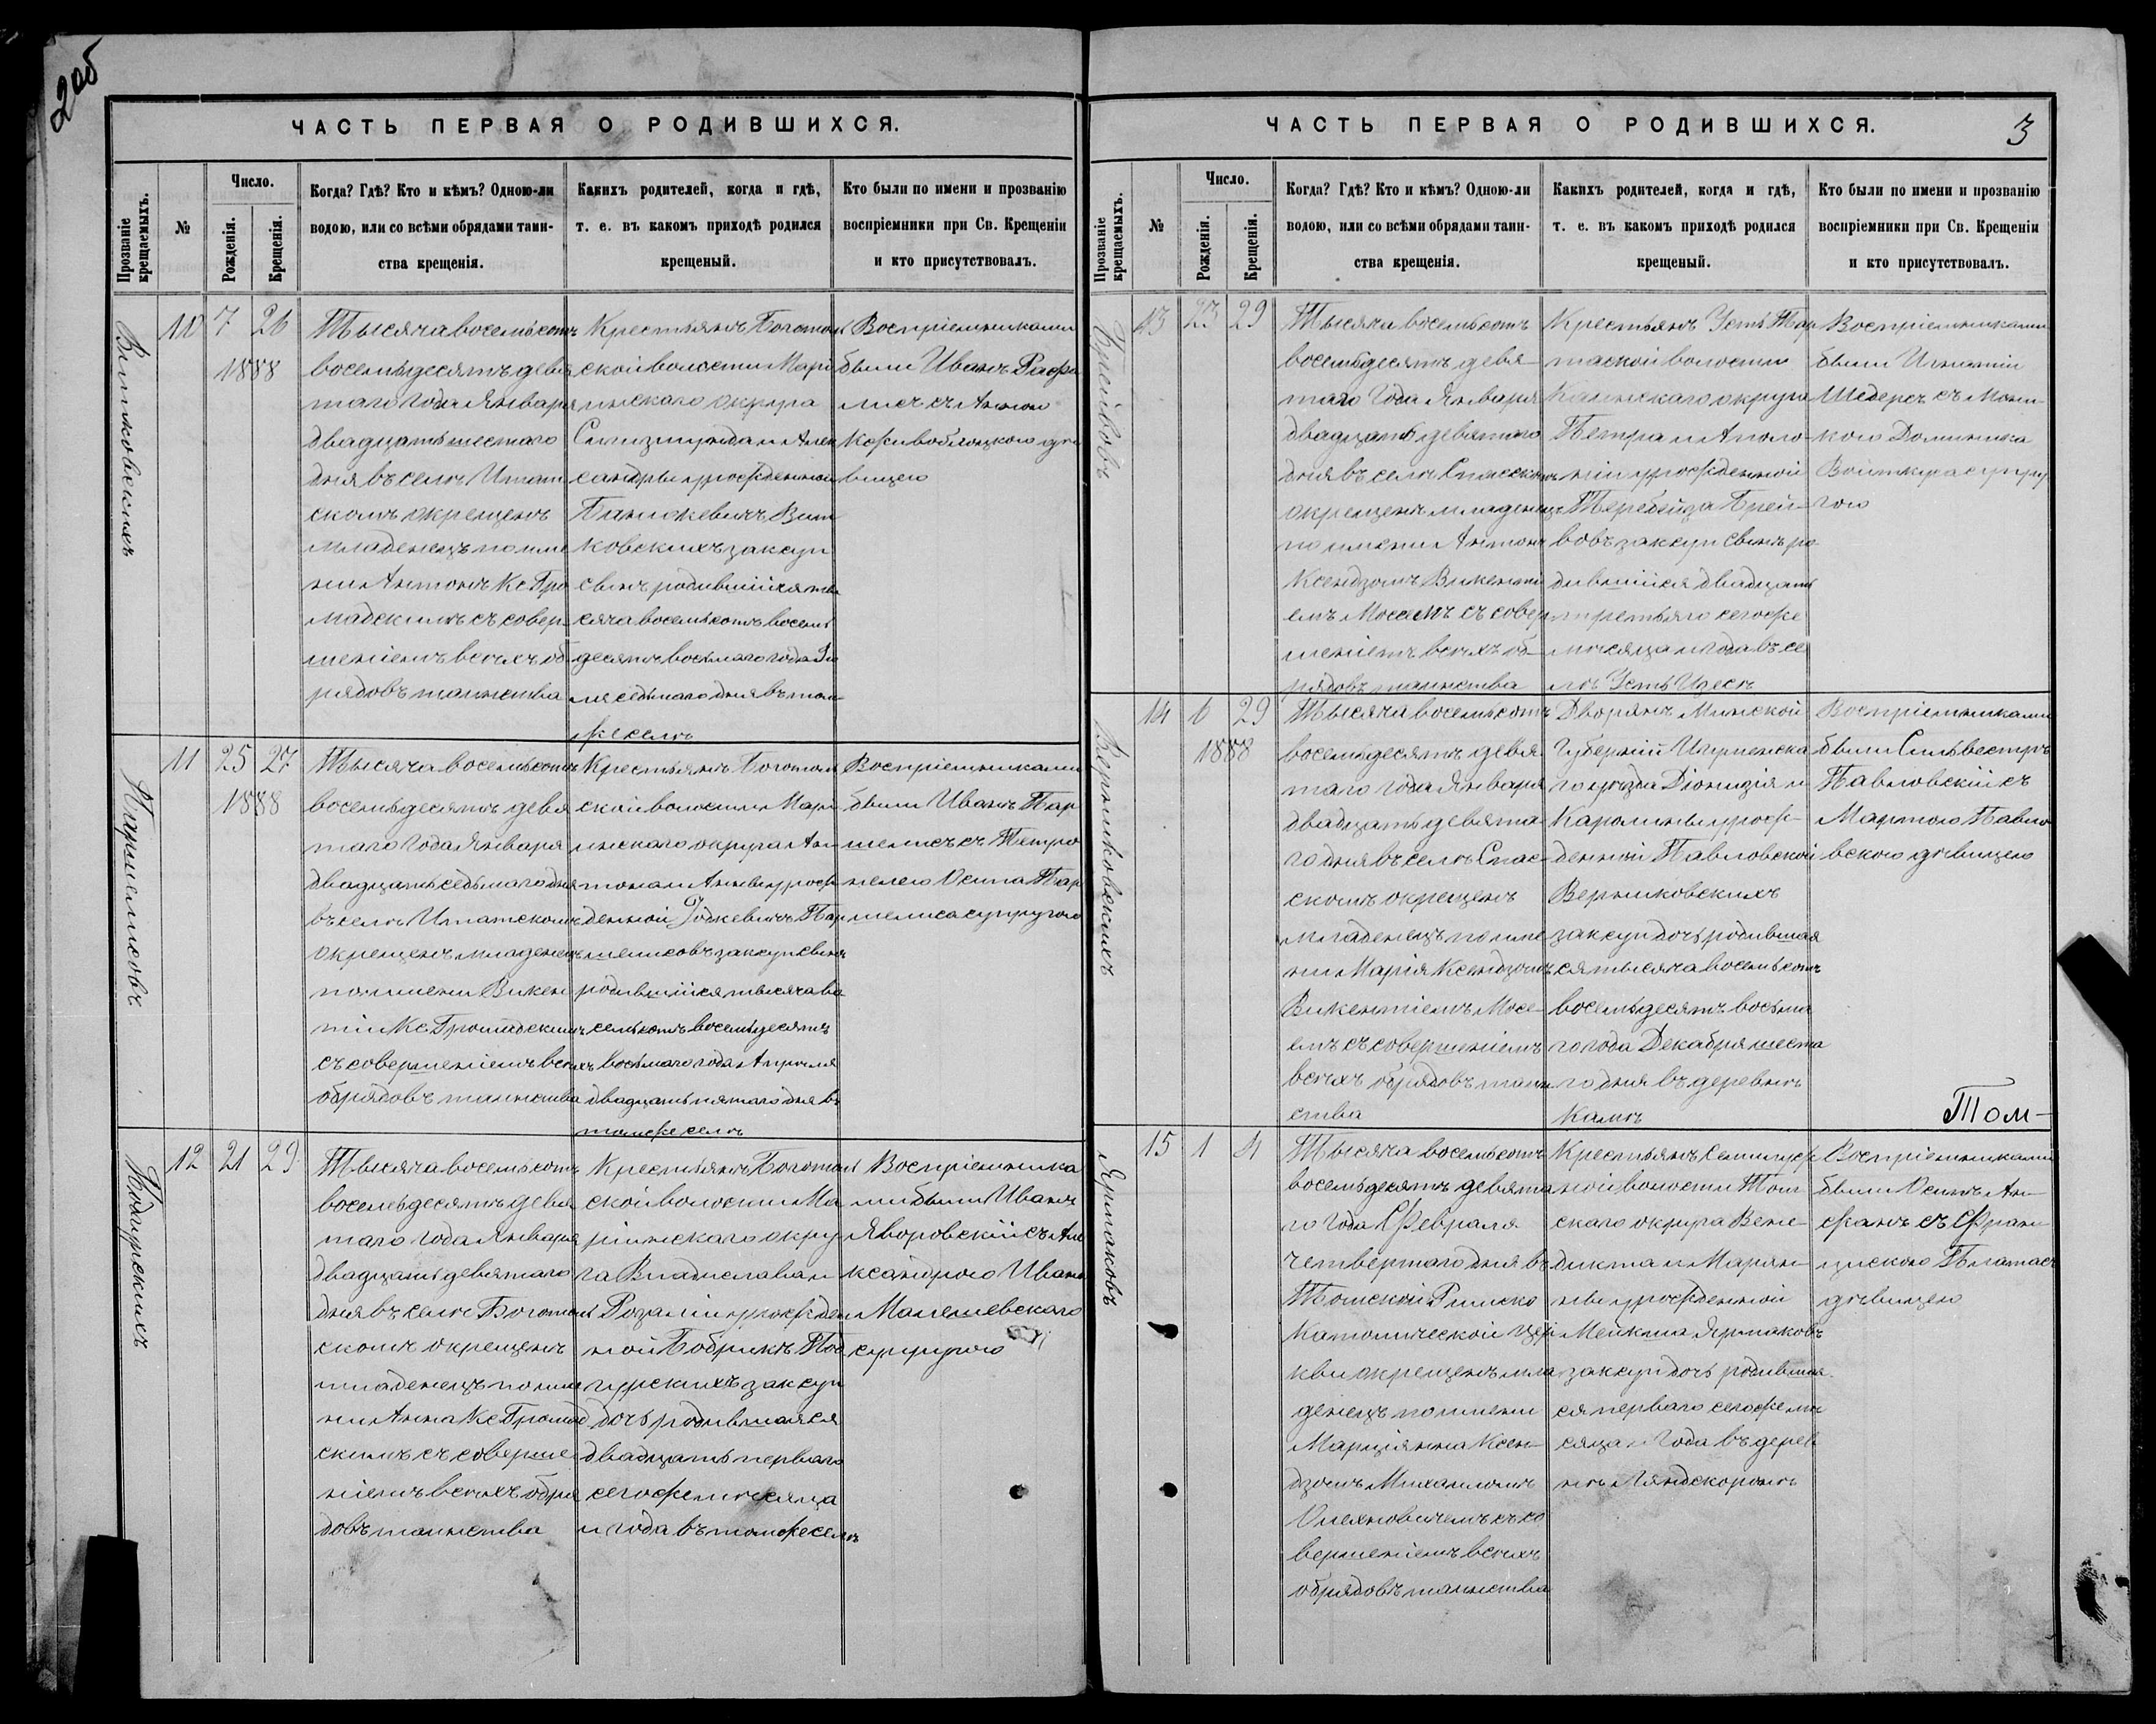 2об
ЧАСТЬ ПЕРВАЯ О РОДИВШИХСЯ.
Прозваніе крещаемыхъ.
№
Число.
Рожденія.
Крещенія.
Когда? Гдѣ? Кто и кѣмъ? Одною-ли
водою, или со всѣми обрядами таин-
ства крещенія.
Какихъ родителей, когда и гдѣ,
т. е. въ какомъ приходѣ родился
крещеный.
Кто были по имени и прозванію
воспріемники при Св. Крещеніи
и кто присутствовалъ.
Витковскихъ
10 7 26
1888
Тысяча восемьсотъ
восемьдесятъ девя
таго года Января
двадцать шестаго
дня въ селѣ Итат
скомъ окрещенъ
младенецъ по име
ни Антонъ Кс Гро
мадскимъ съ совер
шеніемъ всѣхъ об
рядовъ таинства
Крестьянъ Боготол
ской волости Марі
инскаго округа
Сигизмунда и Алек
сандры урожденной
Банюкевичъ Вит
ковскихъ зак суп
сынъ родившійся ты
сяча восемьсотъ восемь
десятъ восьмаго года Ію
ля седьмаго дня въ том
же селѣ
Воспріемниками
были Иванъ
съ Анною
дѣ
вицею
Паршелисовъ
11 25 27
1888
Тысяча восемьсотъ
восемьдесятъ девя
таго года Января
двадцать седьмаго дня
въ селѣ Итатскомъ
окрещенъ младенецъ
по имени Викен
тій Кс Громадскимъ
съ совершеніемъ всѣхъ
обрядовъ таинства
Крестьянъ Боготол
ской волости Марі
инскаго округа Ан
тона и Анны урож
денной Юцкевичъ Пар
шелисовъ зак суп сынъ
родившійся тысяча во
семьсотъ восемьдесятъ
восьмаго года Апрѣля
двадцать пятаго дня въ
томже селѣ
Воспріемниками
были Иванъ Пар
шелисъ съ Петро
нелею Осипа Пар
шелиса супругою
Подгурскихъ
12 21 29
Тысяча восемьсотъ
восемьдесятъ девя
таго года Января
двадцать девятаго
дня въ селѣ Боготол
скомъ окрещенъ
младенецъ по име
ни Анна Кс Громад
скимъ съ соверше
ніемъ всѣхъ обря
довъ таинства
Крестьянъ Боготол
ской волости Ма
ріинскаго окру
га Владислава и
Розаліи урожден
ной Бобрикъ Под
гурскихъ зак суп
дочь родившаяся
двадцать перваго
сегоже мѣсяца
и года въ томже селѣ
Воспріемника
ми были Иванъ
Яворовскій съ Але
ксандрою Ивана
Малешевскаго
супругою
3
ЧАСТЬ ПЕРВАЯ О РОДИВШИХСЯ.
Прозваніе крещаемыхъ.
№
Число.
Рожденія.
Крещенія.
Когда? Гдѣ? Кто и кѣмъ? Одною-ли
водою, или со всѣми обрядами таин-
ства крещенія.
Какихъ родителей, когда и гдѣ,
т. е. въ какомъ приходѣ родился
крещеный.
Кто были по имени и прозванію
воспріемники при Св. Крещеніи
и кто присутствовалъ.
Брейвовъ
13 23 29
Тысяча восемьсотъ
восемьдесятъ девя-
таго года Января
двадцать девятаго
дня въ селѣ Спасскомъ
окрещенъ младенецъ
по имени Антонъ
Ксендзомъ Викенті
емъ Мосемъ съ совер
шеніемъ всѣхъ об-
рядовъ таинства
Крестьянъ Усть Тар
таской волости
Каинскаго округа
Петра и Аполо-
ніи урожденной
Брей-
вовъ зак суп сынъ ро
дившійся двадцать
третьяго сегоже
мѣсяца и года въ се
лѣ Усть
Воспріемниками
были Игнатій
Шедерсъ съ Мони-
кою Доминика
Войткуса супру
гою
Верниковскихъ
14 6 29
1888
Тысяча восемьсотъ
восемьдесятъ девя
таго года Января
двадцать девята-
го дня въ селѣ Спас-
скомъ окрещенъ
младенецъ по име
ни Марія Ксендзомъ
Викентіемъ Мосе-
емъ съ совершеніемъ
всѣхъ обрядовъ таин
ства
Дворянъ Минской
губерніи Игуменска
го уѣзда Діонизія и
Каролины урож-
денной Павловской
Верниковскихъ
зак суп дочь родившая
ся тысяча восемьсотъ
восемьдесятъ восьма
го года Декабря шеста
го дня въ деревнѣ
Воспріемниками
были Сильвестръ
Павловскій съ
Мартою Павло
вскою дѣвицею
Том-
Ярмаковъ
15 1 4
Тысяча восемьсотъ
восемьдесятъ девята
го года Февраля
четвертаго дня въ
Томской Римско
Католической цер
кви окрещенъ мла
денецъ по имени
Марціянна Ксен-
дзомъ Михаиломъ
Олехновичемъ съ со
вершеніемъ всѣхъ
обрядовъ таинства
Крестьянъ Семилуж
ной волости Том
скаго округа Вене-
дикта и Марян-
ны урожденной
Мейкша Ярмаковъ
зак суп дочь родившая
ся перваго сегоже мѣ
сяца и года въ дерев
нѣ Ляндскоронѣ
Воспріемниками
были Осипъ Ан-
съ Фран-
цискою
дѣвицею